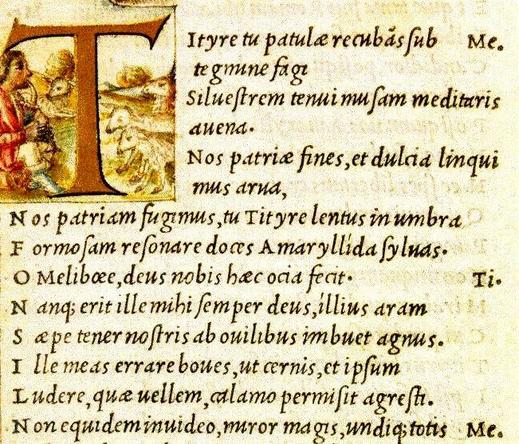 Tityre tu patulæ recubãs sub Me.
tegmine fagi
Siluestrem tenui musam meditaris
auena.
Nos patriæ fines, et dulcia linqui
mus arua,
Nos patriam fugimus, tu Tityre lentus in umbra
Formosam resonare doces Amaryllida syluas.
O Melibœe, deus nobis hæc ocia fecit. Ti.
Nanq; erit ille mihi semper deus, illius aram
Sæpe tener nostris ab ouilibus imbuet agnus.
Ille meas errare boues, ut cernis, et ipsum
Ludere, quæ uellem, calamo permisit agresti.
Non equidem inuideo, miror magis, undiq; totis Me.